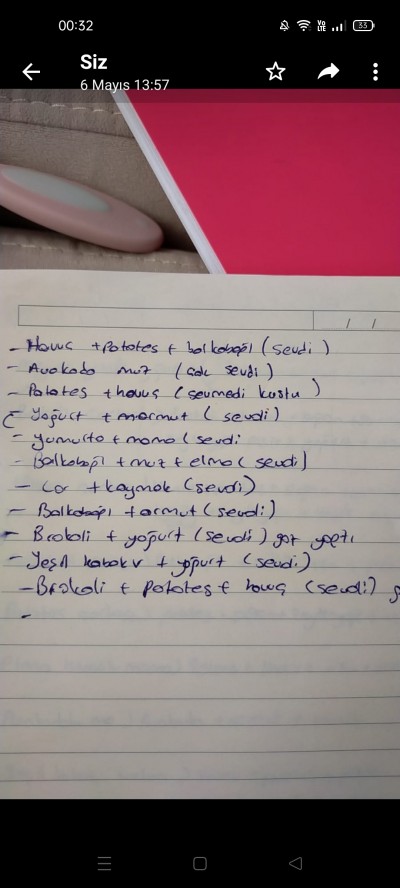 00:32
Vo LTE
33
Siz
6 Mayıs 13:57
/ /
- Havuç + patates + balkabağı (sevdi)
- Avokado muz (çok sevdi)
- Patates + havuç (sevmedi kustu)
Yoğurt + armut (sevdi)
- yumurta + mama (sevdi
- Balkabağı + muz + elma (sevdi)
- Lor + kaymak (sevdi)
- Balkabağı + armut (sevdi)
- Brokoli + yoğurt (sevdi) gaz yaptı
- Yeşil kabak + yoğurt (sevdi)
- Brokoli + patates + havuç (sevdi)
-